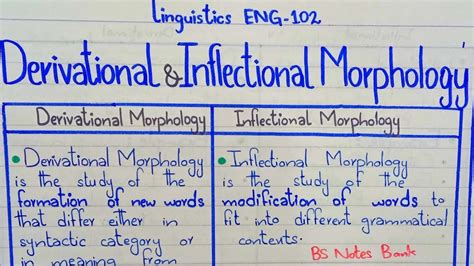 Linguistics ENG-102
Derivational & Inflectional Morphology
Derivational Morphology
Inflectional Morphology
• Derivational Morphology
is the study of the
formation of new words
that differ either in
syntactic category or
in meaning from
• Inflectional Morphology
is the study of the
modification of words to
fit into different grammatical
contents.
BS Notes Bank